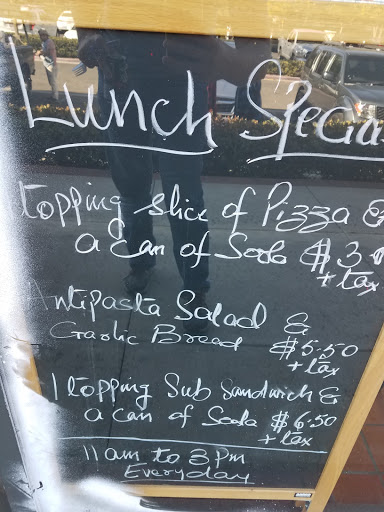 Lunch Specia
topping slice of Pizza &
a can of Soda $3
+ tax
Antipasta Salad &
Garlic Bread $5.50
+ tax
1 topping Sub Sandwich &
a can of Soda $6.50
+ tax
11am to 3pm
Everyday